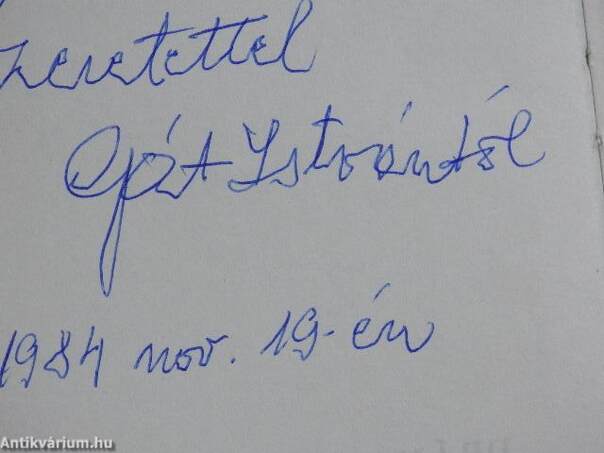 zeretettel
Gát Istvántól
1984 nov. 19-én
Antikvárium.hu